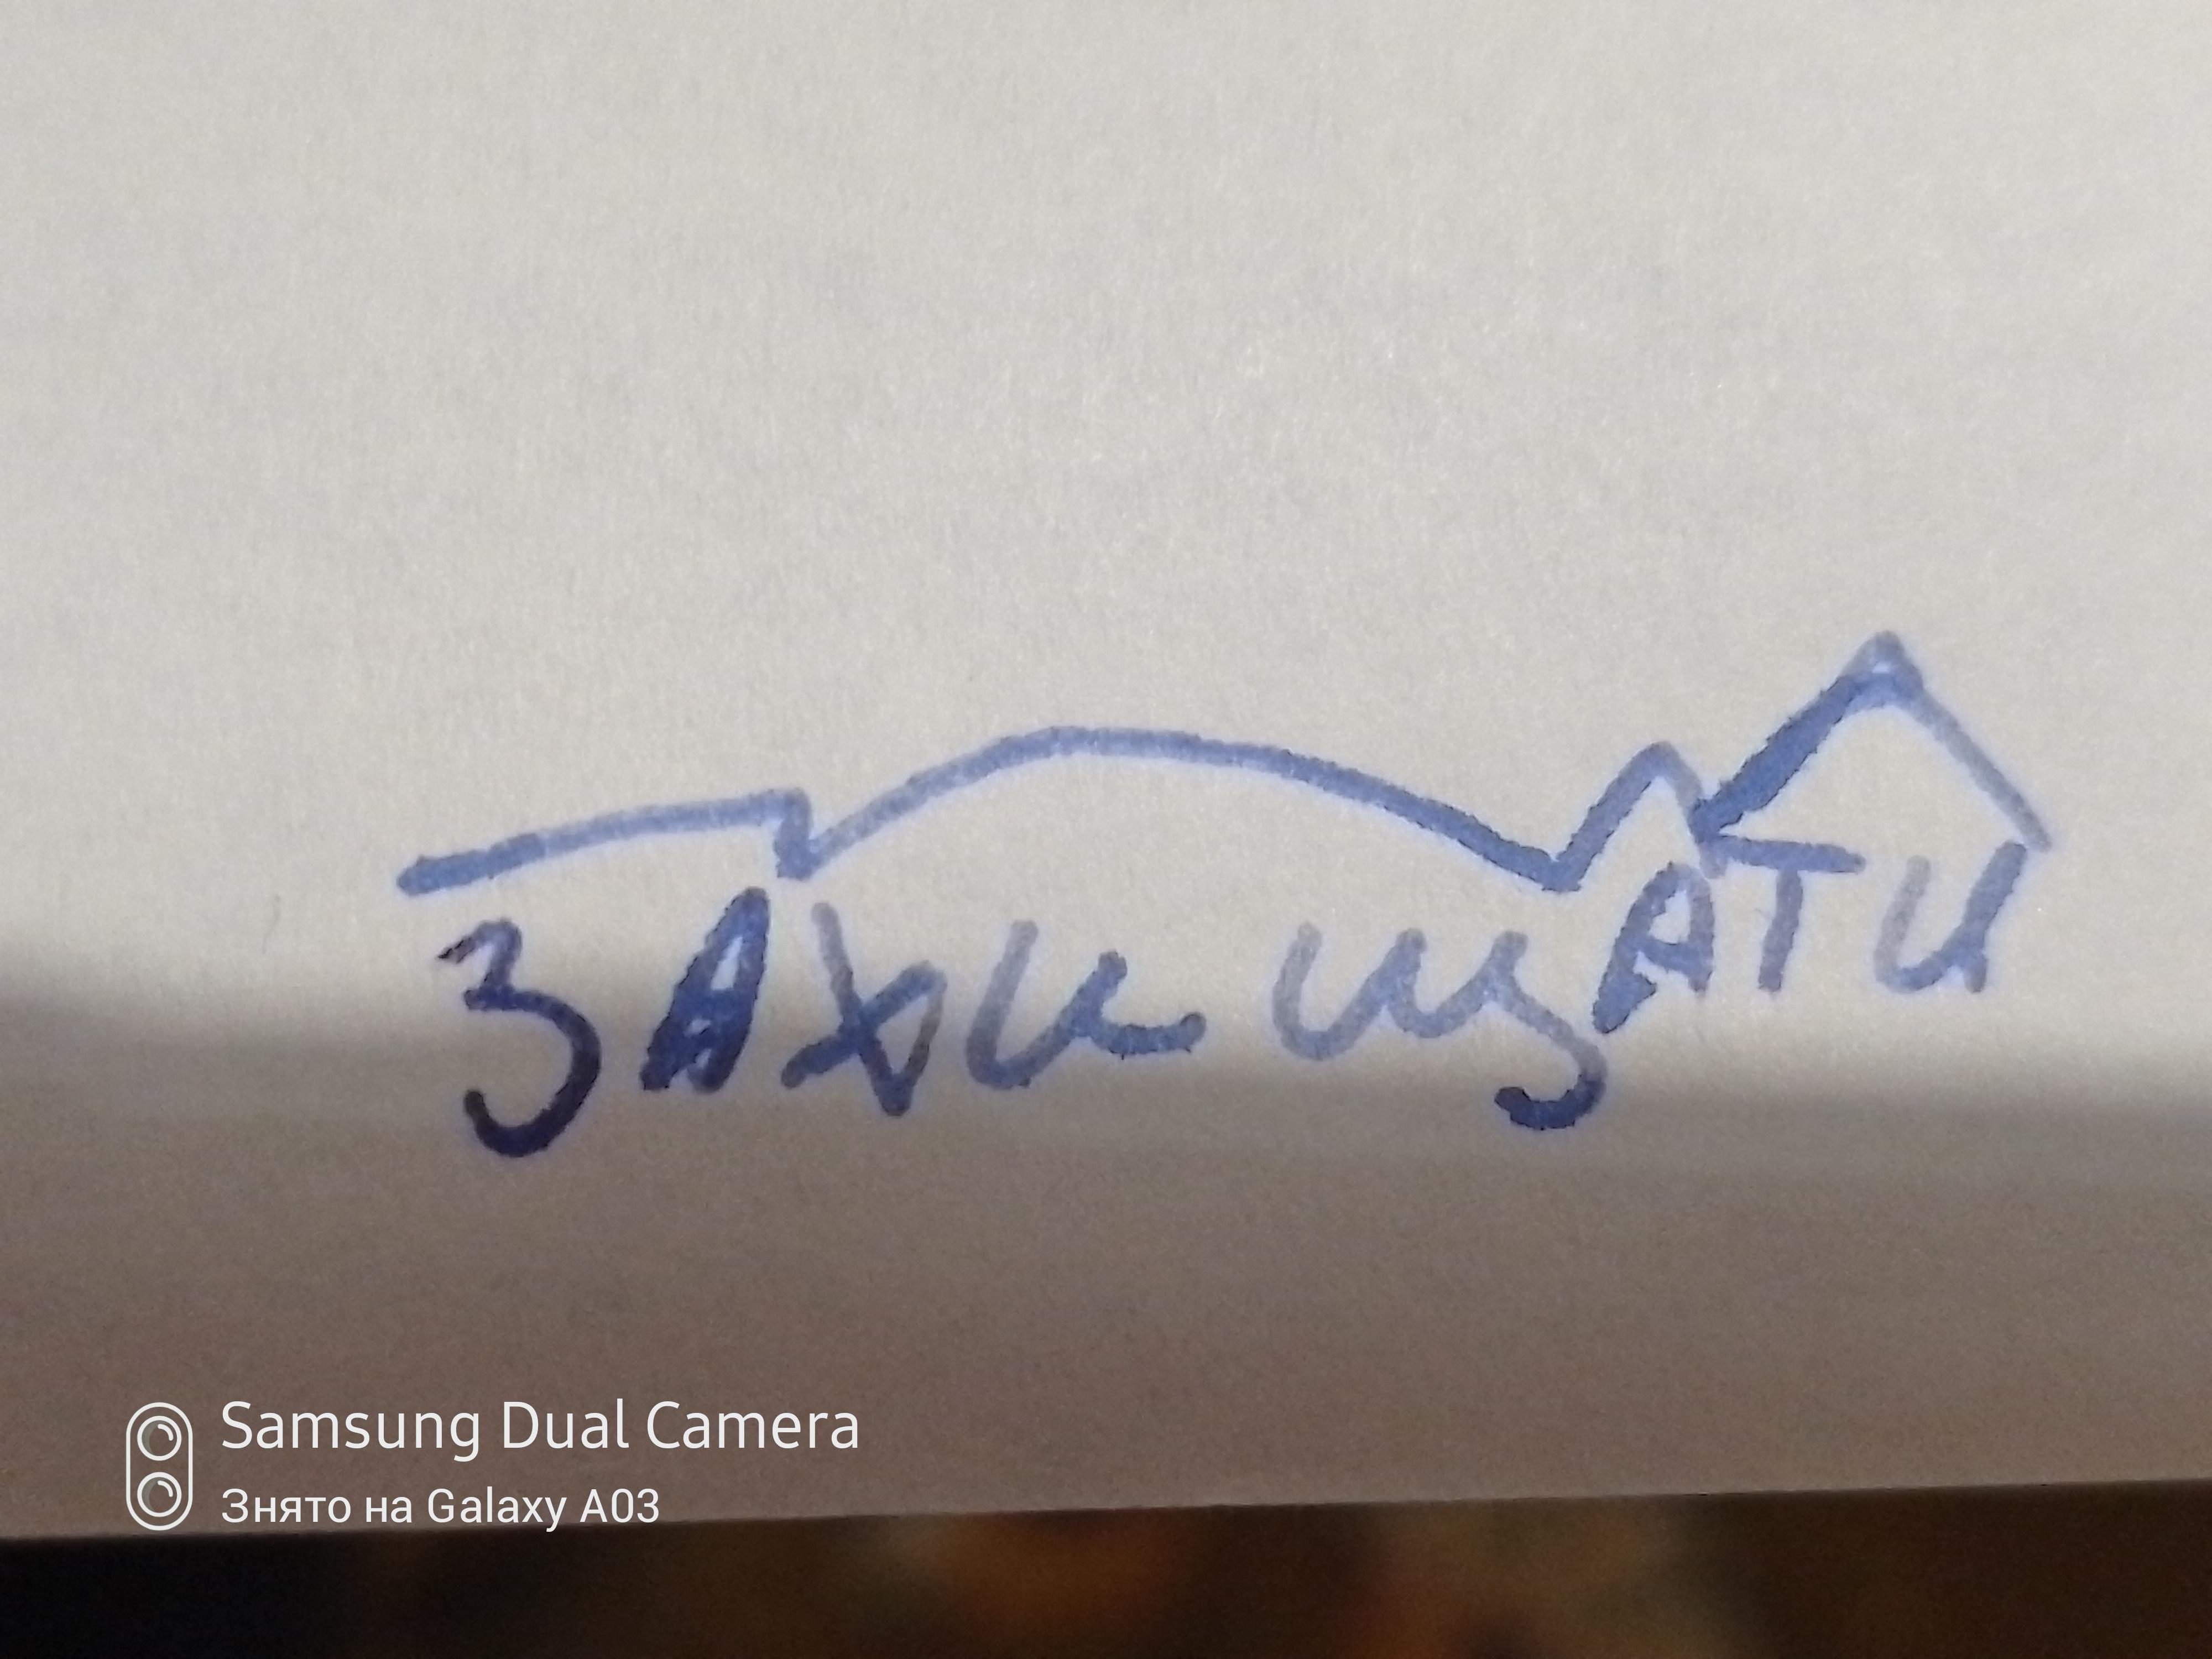 захищати
Samsung Dual Camera
Знято на Galaxy A03